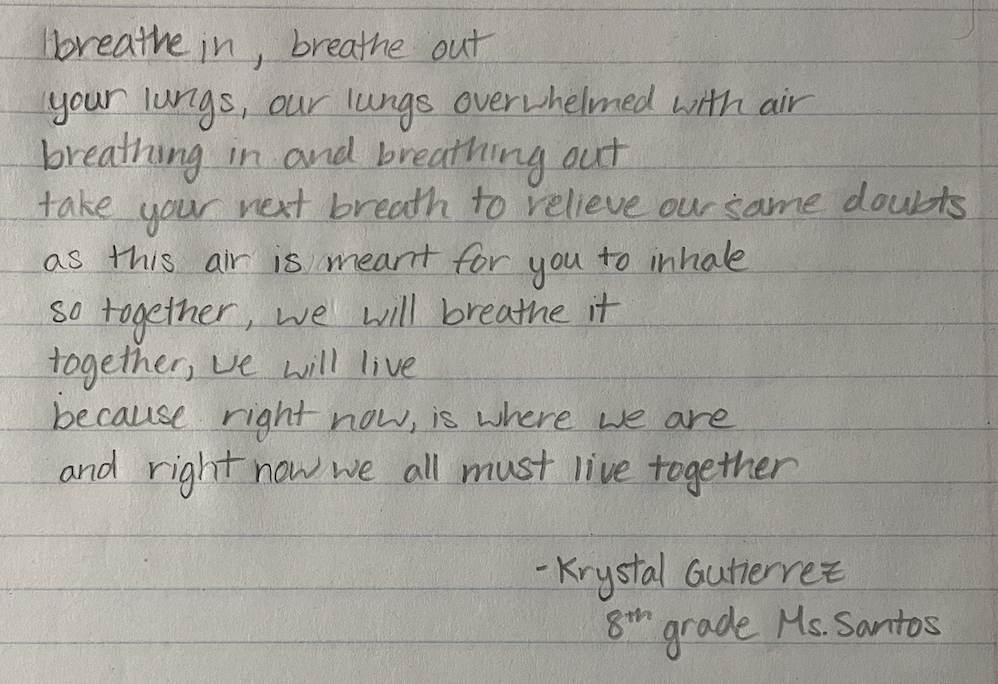 breathe in, breathe out
your lungs, our lungs overwhelmed with air
breathing in and breathing out
take your next breath to relieve our same doubts
as this air is meant for you to inhale
so together, we will breathe it
together, we will live
because right now, is where we are
and right now we all must live together
-Krystal Gutierrez
8th grade Ms. Santos